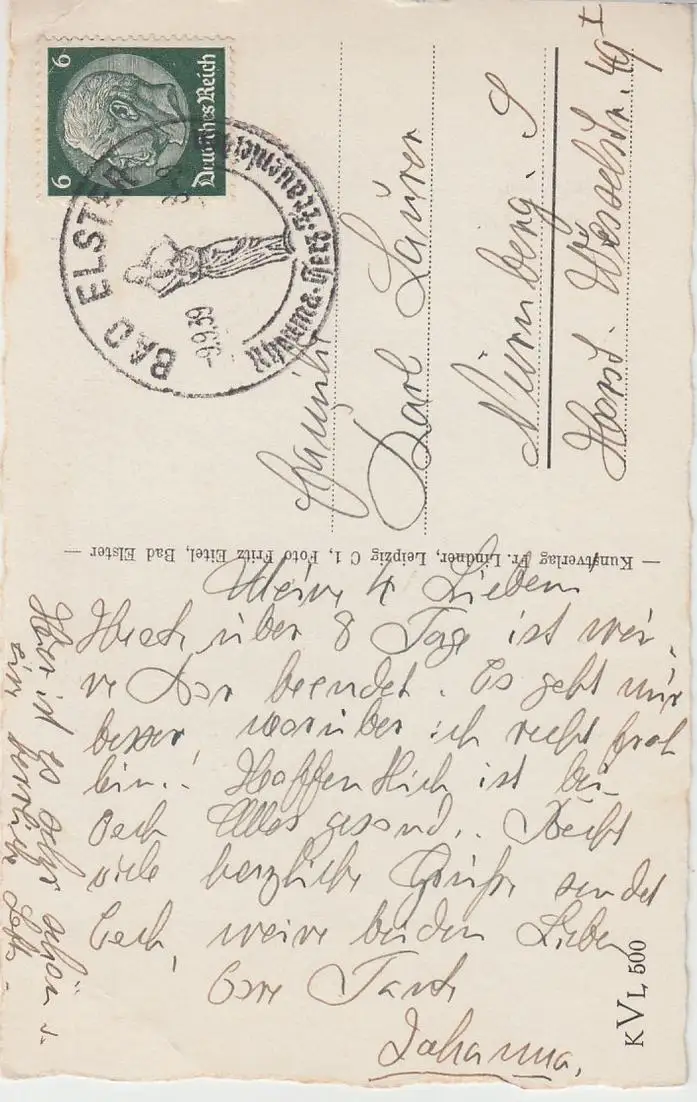 6 6
Deutsches Reich
BAD ELSTER
9.9.39
Rheuma · Herz · Frauenleiden
Familie
Karl Läuren
Nürnberg. S
Horst Wesselstr. 49 I
— Kunstverlag Fr. Lindner, Leipzig C 1, Foto Fritz Eitel, Bad Elster —
Meine 4 Lieben!
Heute über 8 Tage ist mei-
ne Kur beendet. Es geht mir
besser, worüber ich recht froh
bin.. Hoffentlich ist bei
Euch Alles gesund.. Recht
viele herzliche Grüße sendet
Euch, meine beiden Lieben
Eure Tante
Johanna.
Hier ist es sehr schön u.
eine herrliche Luft.
KVL 500